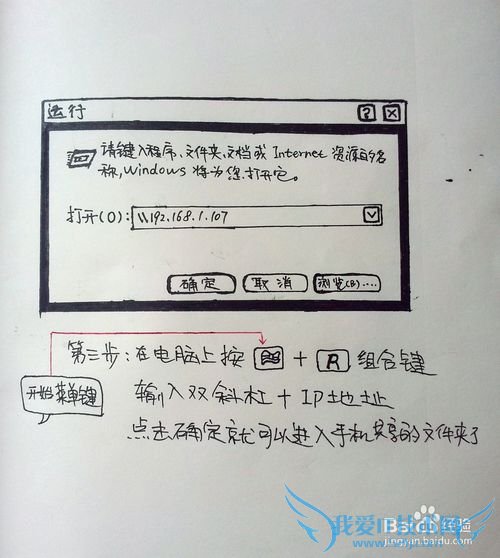 运行
? X
请键入程序、文件夹、文档或Internet资源的名
称,Windows将为您打开它。
打开(O): \\192.168.1.107
确定 取消 浏览(B)....
第三步:在电脑上按 + R 组合键
开始菜单键
输入双斜杠+IP地址
点击确定就可以进入手机共享的文件夹了
Baidu 经验
jingyan.baidu.com